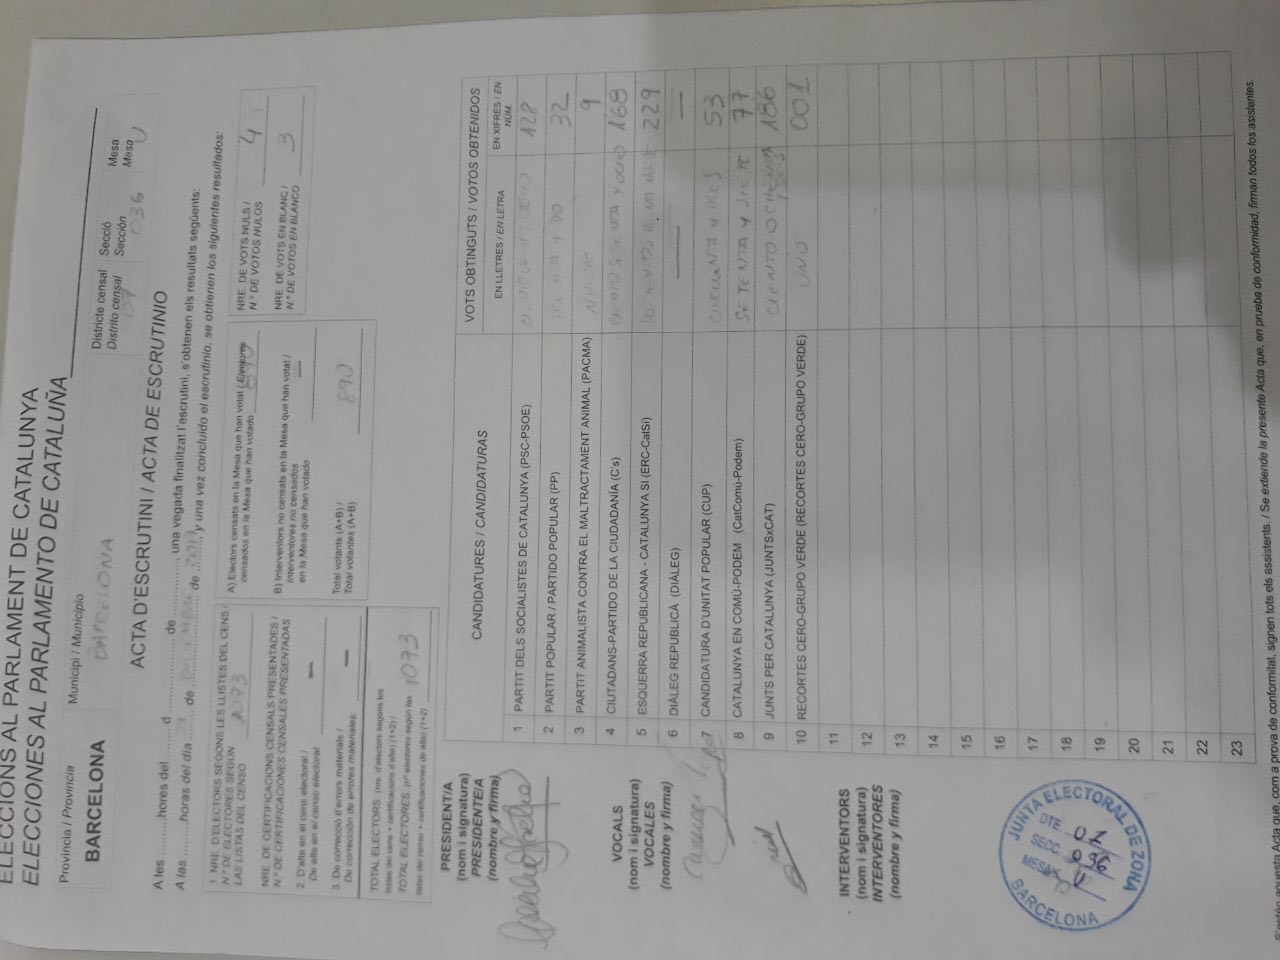 ELECCIONS AL PARLAMENT DE CATALUNYA
ELECCIONES AL PARLAMENTO DE CATALUÑA
Província / Provincia
BARCELONA
Municipi / Municipio
BARCELONA
Districte censal
Distrito censal
07
Secció
Sección
036
Mesa
Mesa
U
ACTA D'ESCRUTINI / ACTA DE ESCRUTINIO
A les ..........hores del .......... d .......... de .........., una vegada finalitzat l'escrutini, s'obtenen els resultats següents:
A las ..........horas del día .......... de DICIEMBRE de 2017 y una vez concluido el escrutinio, se obtienen los siguientes resultados:
1 NRE. D'ELECTORS SEGONS LES LLISTES DEL CENS /
Nº DE ELECTORES SEGÚN
LAS LISTAS DEL CENSO
1073
NRE. DE CERTIFICACIONS CENSALS PRESENTADES /
Nº DE CERTIFICACIONES CENSALES PRESENTADAS
2. D'alta en el cens electoral /
De alta en el censo electoral: —
3. De correcció d'errors materials /
De corrección de errores materiales: —
TOTAL ELECTORS. (nre. d'electors segons les
llistes del cens + certificacions d'alta) (1+2) /
TOTAL ELECTORES. (nº electores según las
listas del censo + certificaciones de alta) (1+2)
1073
A) Electors censats en la Mesa que han votat / Electores
censados en la Mesa que han votado
890
B) Interventors no censats en la Mesa que han votat /
Interventores no censados
en la Mesa que han votado
—
Total votants (A+B) /
Total votantes (A+B)
890
NRE. DE VOTS NULS /
Nº DE VOTOS NULOS
4
NRE. DE VOTS EN BLANC /
Nº DE VOTOS EN BLANCO
3
CANDIDATURES / CANDIDATURAS
VOTS OBTINGUTS / VOTOS OBTENIDOS
EN LLETRES / EN LETRA
EN XIFRES / EN NÚM.
1 PARTIT DELS SOCIALISTES DE CATALUNYA (PSC-PSOE) 128
2 PARTIT POPULAR / PARTIDO POPULAR (PP) TREINTA Y DOS 32
3 PARTIT ANIMALISTA CONTRA EL MALTRACTAMENT ANIMAL (PACMA) NUEVE 9
4 CIUTADANS-PARTIDO DE LA CIUDADANÍA (C's) CIENTO SESENTA Y OCHO 168
5 ESQUERRA REPUBLICANA - CATALUNYA SI (ERC-CatSí) 229
6 DIÀLEG REPUBLICÀ (DIÀLEG) — —
7 CANDIDATURA D'UNITAT POPULAR (CUP) CINCUENTA Y TRES 53
8 CATALUNYA EN COMÚ-PODEM (CatComú-Podem) SETENTA Y SIETE 77
9 JUNTS PER CATALUNYA (JUNTSxCAT) CIENTO OCHENTA Y SEIS 186
10 RECORTES CERO-GRUPO VERDE (RECORTES CERO-GRUPO VERDE) UNO 001
11
12
13
14
15
16
17
18
19
20
21
22
23
PRESIDENTIA
(nom i signatura)
PRESIDENTE/A
(nombre y firma)
VOCALS
(nom i signatura)
VOCALES
(nombre y firma)
INTERVENTORS
(nom i signatura)
INTERVENTORES
(nombre y firma)
JUNTA ELECTORAL DE ZONA
DTE. 07
SECC. 036
MESA U
BARCELONA
S'estén aquesta Acta que, com a prova de conformitat, signen tots els assistents. / Se extiende la presente Acta que, en prueba de conformidad, firman todos los asistentes.